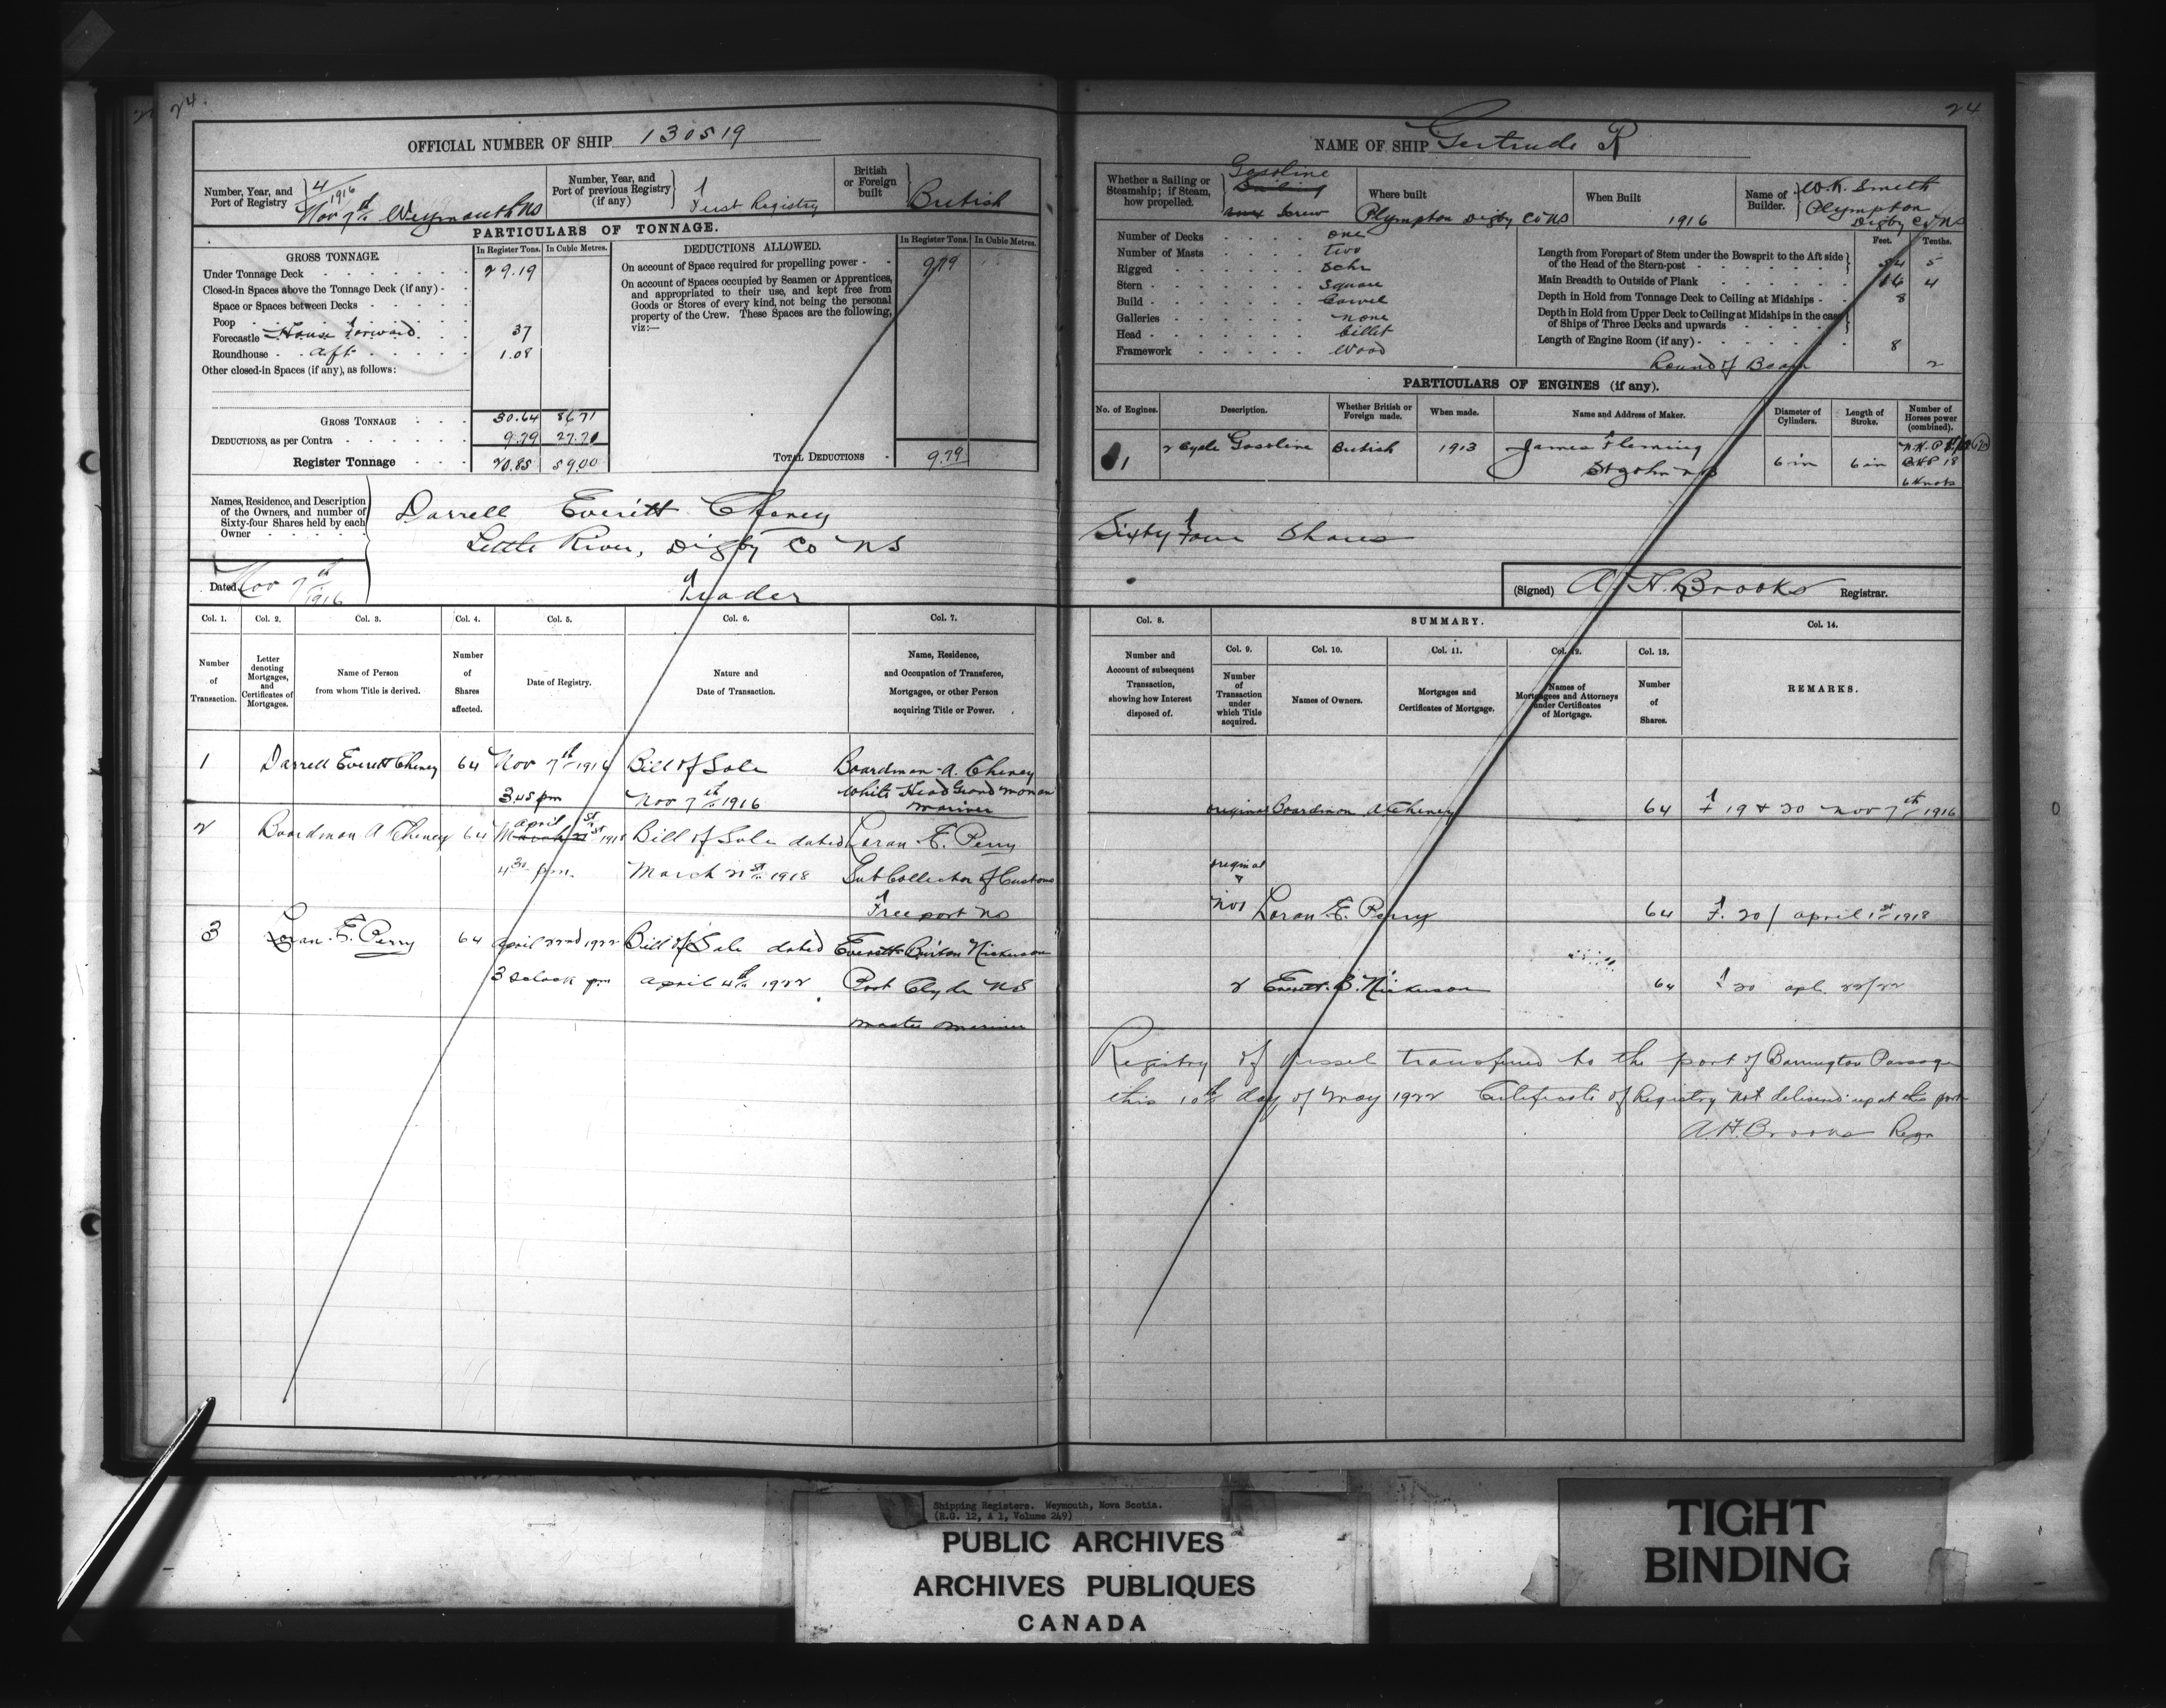 24.
24
OFFICIAL NUMBER OF SHIP 130519
Number, Year, and Port of Registry 4/1916 Nov 7th Weymouth NS
Number, Year, and Port of previous Registry (if any) First Registry
British or Foreign built British
PARTICULARS OF TONNAGE.
GROSS TONNAGE. In Register Tons. In Cubic Metres.
DEDUCTIONS ALLOWED. In Register Tons. In Cubic Metres.
Under Tonnage Deck 29.19
Closed-in Spaces above the Tonnage Deck (if any)
Space or Spaces between Decks
Poop
Forecastle House Forward 37
Roundhouse aft 1.08
Other closed-in Spaces (if any), as follows:
GROSS TONNAGE 30.64 86.71
DEDUCTIONS, as per Contra 9.79 27.71
Register Tonnage 20.85 59.00
On account of Space required for propelling power 9.79
On account of Spaces occupied by Seamen or Apprentices,
and appropriated to their use, and kept free from
Goods or Stores of every kind, not being the personal
property of the Crew. These Spaces are the following,
viz:—
TOTAL DEDUCTIONS 9.79
Names, Residence, and Description of the Owners, and number of Sixty-four Shares held by each Owner
Darrell Everitt Cheney
Little River, Digby Co NS
Trader
Dated Nov 7th 1916
NAME OF SHIP Gertrude R
Whether a Sailing or Steamship; if Steam, how propelled. Gasoline Screw
Where built Plympton Digby Co NS
When Built 1916
Name of Builder. W.K. Smith Plympton Digby Co NS
Number of Decks one
Number of Masts two
Rigged Schr
Stern Square
Build Carvel
Galleries none
Head billet
Framework Wood
Feet. Tenths.
Length from Forepart of Stem under the Bowsprit to the Aft side of the Head of the Stern-post 54 5
Main Breadth to Outside of Plank 16 4
Depth in Hold from Tonnage Deck to Ceiling at Midships 8
Depth in Hold from Upper Deck to Ceiling at Midships in the case of Ships of Three Decks and upwards
Length of Engine Room (if any) 8
Round of Beam 2
PARTICULARS OF ENGINES (if any).
No. of Engines. Description. Whether British or Foreign made. When made. Name and Address of Maker. Diameter of Cylinders. Length of Stroke. Number of Horses power (combined).
1 2 Cycle Gasoline British 1913 James Fleming St John NB 6 in 6 in
BHP 18
6 Knots
Sixty Four Shares
(Signed) A. H. Brooks Registrar.
Col. 1. Col. 2. Col. 3. Col. 4. Col. 5. Col. 6. Col. 7.
Number of Transaction.
Letter denoting Mortgages, and Certificates of Mortgages.
Name of Person from whom Title is derived.
Number of Shares affected.
Date of Registry.
Nature and Date of Transaction.
Name, Residence, and Occupation of Transferee, Mortgagee, or other Person acquiring Title or Power.
1 Darrell Everett Cheney 64 Nov 7th 1916 Bill of Sale Boardman A. Cheney
3.45 pm Nov 7th 1916 White Head Grand Manan
Mariner
2 Boardman A Cheney 64 April 1st 1918 Bill of Sale dated Loran E. Perry
4.30 pm. March 21st 1918 Sub Collector of Customs
Freeport NS
3 Loran E. Perry 64 April 22nd 1922 Bill of Sale dated Everett Burton Nickerson
3 oclock pm April 4th 1922 Port Clyde NS
Master Mariner
Col. 8. SUMMARY. Col. 14.
Number and Account of subsequent Transaction, showing how Interest disposed of.
Col. 9. Col. 10. Col. 11. Col. 12. Col. 13.
Number of Transaction under which Title acquired.
Names of Owners.
Mortgages and Certificates of Mortgage.
Names of Mortgagees and Attorneys under Certificates of Mortgage.
Number of Shares.
REMARKS.
original Boardman A Cheney 64 F 19 & 20 Nov 7th 1916
original & No1 Loran E. Perry 64 F. 20 / April 1st 1918
2 Everett B. Nickerson 64 F 20 apl. 22/22
Registry of Vessel transferred to the port of Barrington Passage
this 10th day of May 1922 Certificate of Registry not delivered up at this port
A.H. Brooks Regr
Shipping Registers. Weymouth, Nova Scotia.
(R.G. 12, A 1, Volume 249)
PUBLIC ARCHIVES
ARCHIVES PUBLIQUES
CANADA
TIGHT
BINDING